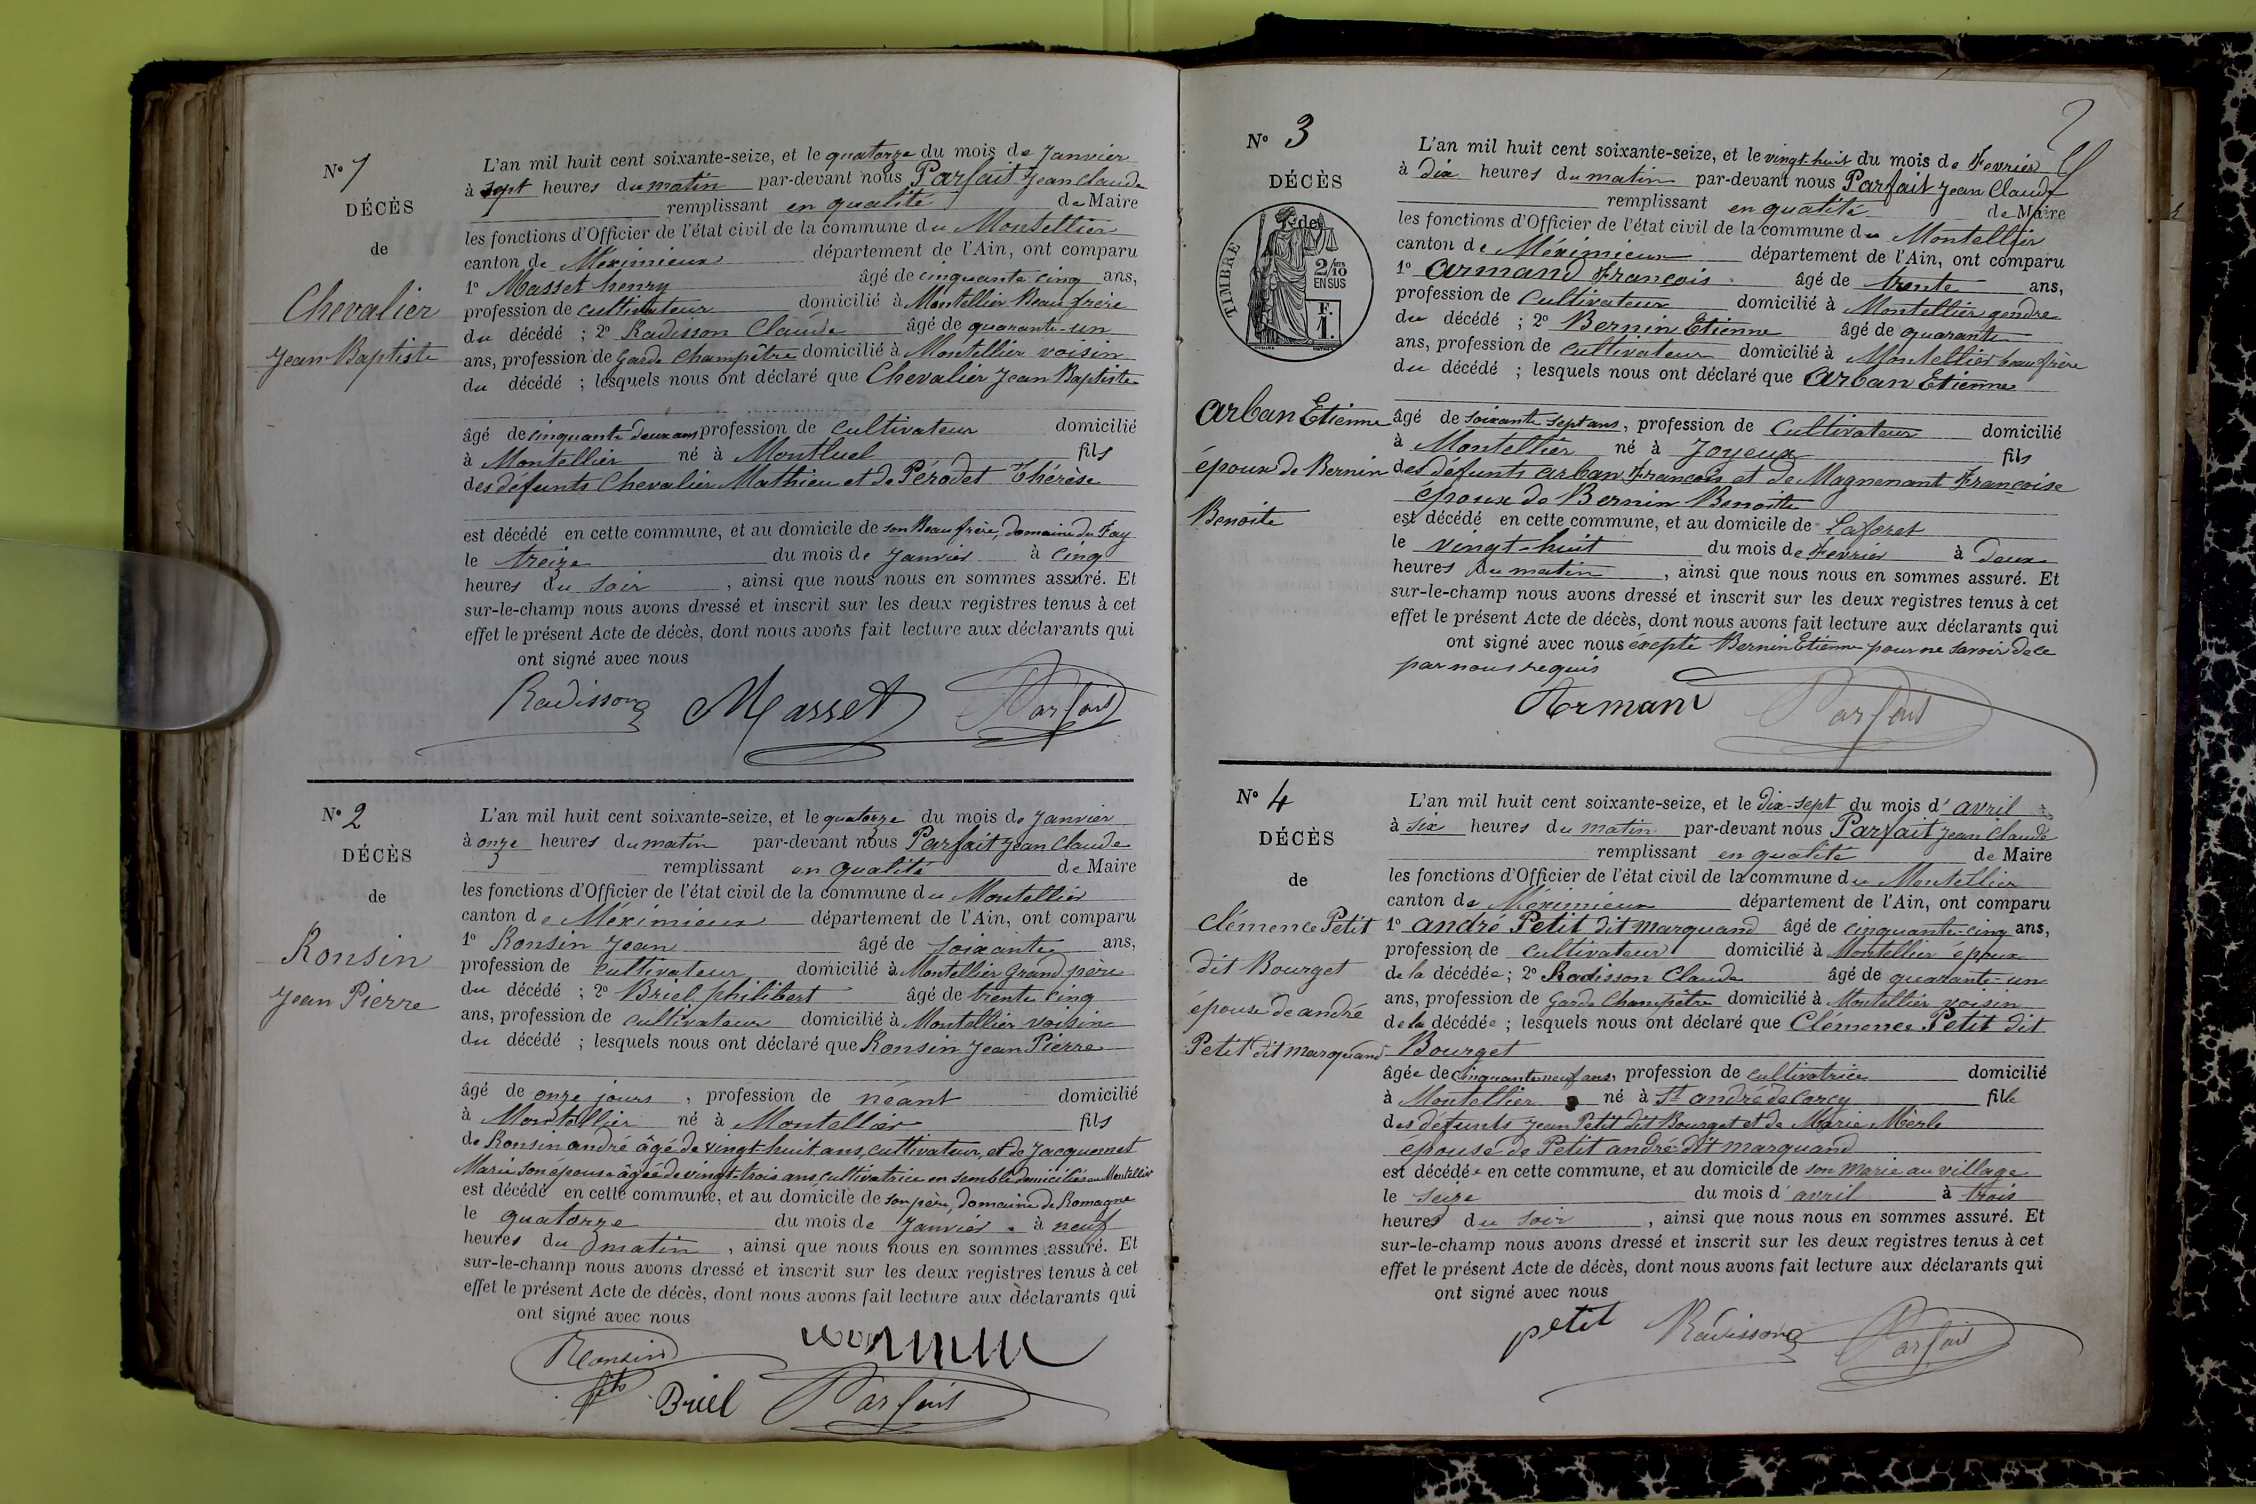 N° 1
DÉCÈS
de
Chevalier
Jean Baptiste
L'an mil huit cent soixante-seize, et le quatorze du mois de Janvier
à sept heures du matin par-devant nous Parfait Jean Claude
remplissant en qualité de Maire
les fonctions d'Officier de l'état civil de la commune du Montellier
canton de Méximieux département de l'Ain, ont comparu
1° Masset henry âgé de cinquante cinq ans,
profession de cultivateur domicilié à Montellier Beau frère
du décédé ; 2° Radisson Claude âgé de quarante-un
ans, profession de Garde Champêtre domicilié à Montellier voisin
du décédé ; lesquels nous ont déclaré que Chevalier Jean Baptiste
âgé de cinquante deux ans profession de cultivateur domicilié
à Montellier né à Montluel fils
des défunts Chevalier Mathieu et de Pérodet Thérèse
est décédé en cette commune, et au domicile de son Beau frère, domaine du Fay
le treize du mois de Janvier à cinq
heures du soir, ainsi que nous nous en sommes assuré. Et
sur-le-champ nous avons dressé et inscrit sur les deux registres tenus à cet
effet le présent Acte de décès, dont nous avons fait lecture aux déclarants qui
ont signé avec nous
Radisson Masset Parfait
N° 2
DÉCÈS
de
Ronsin
Jean Pierre
L'an mil huit cent soixante-seize, et le quatorze du mois de Janvier
à onze heures du matin par-devant nous Parfait Jean Claude
remplissant en qualité de Maire
les fonctions d'Officier de l'état civil de la commune du Montellier
canton de Méximieux département de l'Ain, ont comparu
1° Ronsin Jean âgé de soixante ans,
profession de cultivateur domicilié à Montellier Grand père
du décédé ; 2° Briel philibert âgé de trente cinq
ans, profession de cultivateur domicilié à Montellier voisin
du décédé ; lesquels nous ont déclaré que Ronsin Jean Pierre
âgé de onze jours, profession de néant domicilié
à Montellier né à Montellier fils
de Ronsin andré âgé de vingt-huit ans, cultivateur, et de Jacquemet
Marie son epouse âgée de vingt-trois ans cultivatrice en semble domiciliés au Montellier
est décédé en cette commune, et au domicile de son père, domaine de Romagne
le quatorze du mois de Janvier à neuf
heures du matin, ainsi que nous nous en sommes assuré. Et
sur-le-champ nous avons dressé et inscrit sur les deux registres tenus à cet
effet le présent Acte de décès, dont nous avons fait lecture aux déclarants qui
ont signé avec nous
Ronsin
Briel Parfait
2
N° 3
DÉCÈS
de
TIMBRE
2/10
EN SUS
F.
1.
Arban Etienne
époux de Bernin
Benoite
L'an mil huit cent soixante-seize, et le vingt-huit du mois de Fevrier
à dix heures du matin par-devant nous Parfait Jean Claude
remplissant en qualité de Maire
les fonctions d'Officier de l'état civil de la commune du Montellier
canton de Méximieux département de l'Ain, ont comparu
1° Armand François âgé de trente ans,
profession de Cultivateur domicilié à Montellier gendre
du décédé ; 2° Bernin Etienne âgé de quarante
ans, profession de cultivateur domicilié à Montellier beau frère
du décédé ; lesquels nous ont déclaré que Arban Etienne
âgé de soixante sept ans, profession de Cultivateur domicilié
à Montellier né à Joyeux fils
des défunts Arban François et de Magnenant Françoise
époux de Bernin Benoite
est décédé en cette commune, et au domicile de Laforet
le vingt-huit du mois de Fevrier à deux
heures du matin, ainsi que nous nous en sommes assuré. Et
sur-le-champ nous avons dressé et inscrit sur les deux registres tenus à cet
effet le présent Acte de décès, dont nous avons fait lecture aux déclarants qui
ont signé avec nous éxepté Bernin Etienne pour ne savoir de ce
par nous requis
Armand Parfait
N° 4
DÉCÈS
de
Clémence Petit
dit Bourget
épouse de andré
Petit dit marquand
L'an mil huit cent soixante-seize, et le dix-sept du mois d'avril
à six heures du matin par-devant nous Parfait Jean Claude
remplissant en qualité de Maire
les fonctions d'Officier de l'état civil de la commune du Montellier
canton de Méximieux département de l'Ain, ont comparu
1° andré Petit dit marquand âgé de cinquante-cinq ans,
profession de cultivateur domicilié à Montellier époux
de la décédée ; 2° Radisson Claude âgé de quarante-un
ans, profession de Garde Champêtre domicilié à Montellier voisin
de la décédée ; lesquels nous ont déclaré que Clémence Petit dit
Bourget
âgée de cinquante neuf ans, profession de cultivatrice domicilié
à Montellier né à St andré de Corcy fille
des défunts Jean Petit dit Bourget et de Marie Merle
épouse de Petit andré dit marquand
est décédée en cette commune, et au domicile de son Marie au village
le seize du mois d'avril à trois
heures du soir, ainsi que nous nous en sommes assuré. Et
sur-le-champ nous avons dressé et inscrit sur les deux registres tenus à cet
effet le présent Acte de décès, dont nous avons fait lecture aux déclarants qui
ont signé avec nous
petit Radisson Parfait